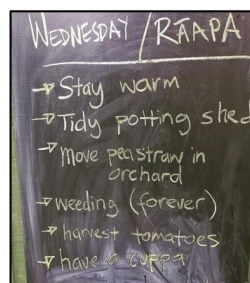 WEDNESDAY / RĀAPA
→ Stay warm
→ Tidy potting shed
→ Move peastraw in
orchard
→ weeding (forever)
→ harvest tomatoes
→ have a cuppa